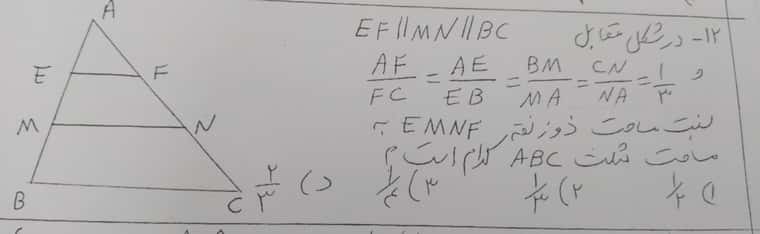 ۱۲- در شکل مقابل EF||MN||BC
و AF/FC = AE/EB = BM/MA = CN/NA = ۱/۳
نسبت مساحت ذوزنقه EMNF به
مساحت مثلث ABC کدام است؟
۱) ۱/۲ ۲) ۱/۳ ۳) ۱/۴ د) ۲/۳
A
E F
M N
B C